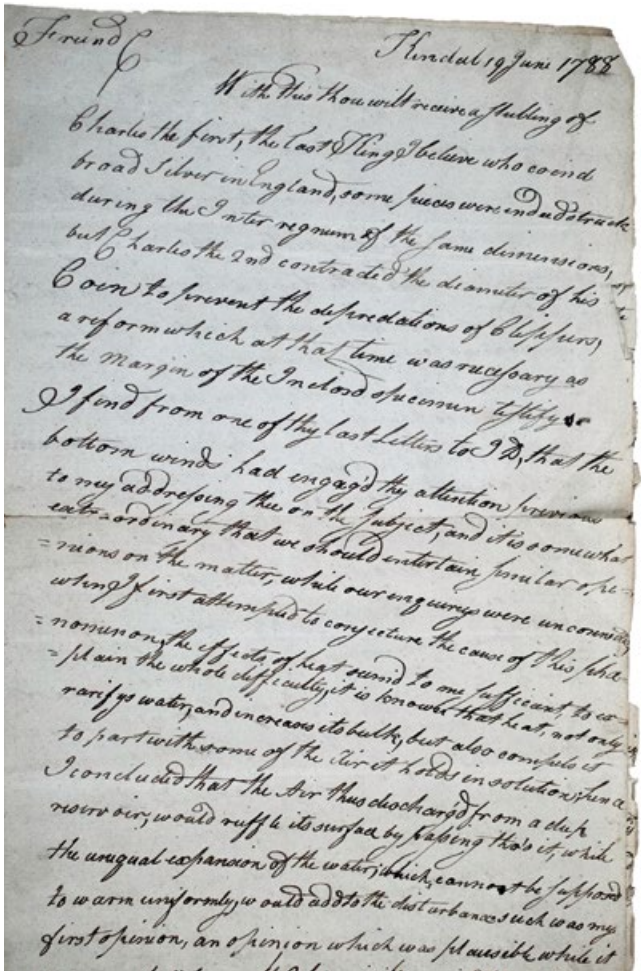 Friend
Kendal 19 June 1788
With this thou wilt receive a shilling of
Charles the first, the last King I believe who coind
broad Silver in England, some pieces were indeed struck
during the Inter regnum of the same dimensions,
but Charles the 2nd contracted the diameter of his
Coin to prevent the depredations of Clippers,
a reform which at that time was necessary as
the margin of the Inclosd specimen testifys
I find from one of thy last Letters to J D, that the
bottom winds had engagd thy attention previous
to my addressing thee on the Subject, and it is somewhat
extr=ordinary that we should entertain similar opi=
=nions on the matter, while our enquirys were unconnected,
when I first attempted to conjecture the cause of this phæ
=nomenon, the effects of heat seemd to me sufficient to ex=
=plain the whole difficulty, it is known that heat, not only
rarifys water, and increases its bulk, but also compels it
to part with some of the Air it holds in solution; hence
I concluded that the Air thus dischargd from a deep
reservoir, would ruffle its surface by passing thro' it, while
the unequal expansion of the water, which cannot be supposed
to warm uniformly, would add to the disturbance such was my
first opinion, an opinion which was plausible while it